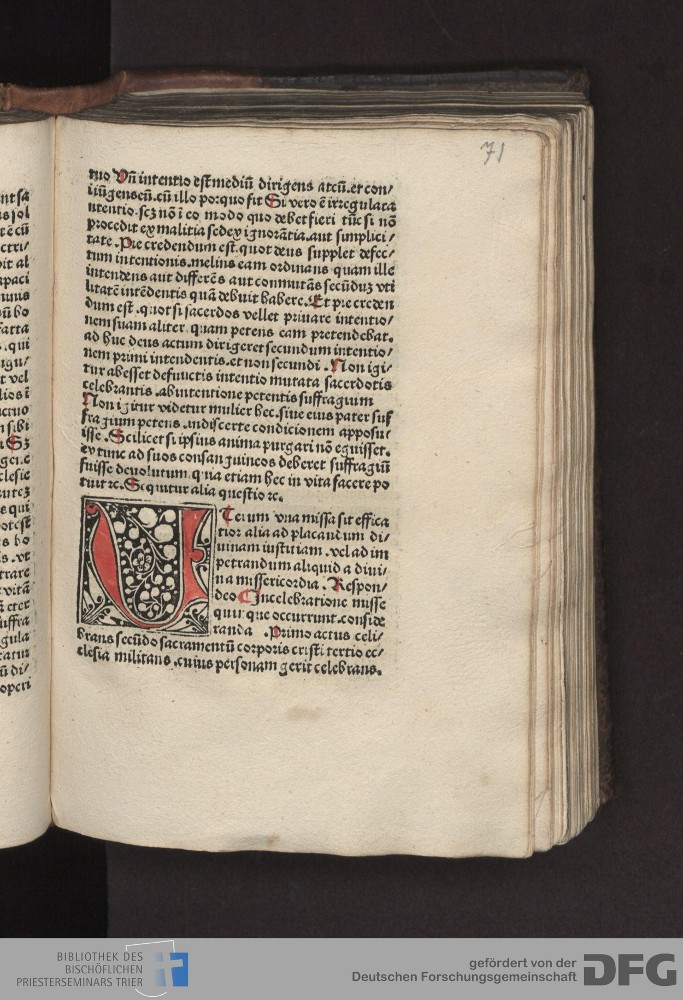 71
tuo Vñ intentio est mediũ dirigens actũ. et con/
iũgens eũ. cũ illo por quo fit Si vero ē irregulata
intentio. scz nō ī eo modo quo debet fieri tūc si nō
procedit ex malitia sed ex ignorãtia. aut simplici/
tate. Pie credendum est. quot deus supplet defec/
tum intentionis. melius eam ordinans quam ille
intendens aut differēs aut conmutãs secũduz vti
litatē intēdentis quã debuit habere. Et pie creden
dum est. quot si sacerdos vellet priuare intentio/
nem suam aliter. quam petens eam pretendebat.
ad huc deus actum dirigeret secundum intentio/
nem primi intendentis. et non secundi. Non igi/
tur abesset defunctis intentio mutata sacerdotis
celebrantis. ab intentione petentis suffragium
Non igitur videtur mulier hec. siue eius pater suf
fragium petens. indiscerte condicionem apposu/
isse. Scilicet si ipsius anima purgari nō eguisset.
ex tunc ad suos consanguineos deberet suffragiũ
fuisse deuolutum. quia etiam hec in vita facere po
tuit ⁊c. Sequitur alia questio ⁊c.
VTerum vna missa sit effica
tior alia ad placandum di/
uinam iustitiam. vel ad im
petrandum aliquid a diui/
na misericordia. Respon/
deo In celebratione misse
quinque occurrunt. conside
randa. Primo actus celi/
brans secũdo sacramentũ corporis cristi tertio ec/
clesia militans. cuius personam gerit celebrans.
BIBLIOTHEK DES
BISCHÖFLICHEN
PRIESTERSEMINARS TRIER
gefördert von der
Deutschen Forschungsgemeinschaft
DFG